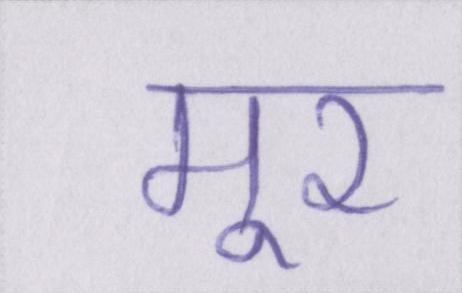 मूर